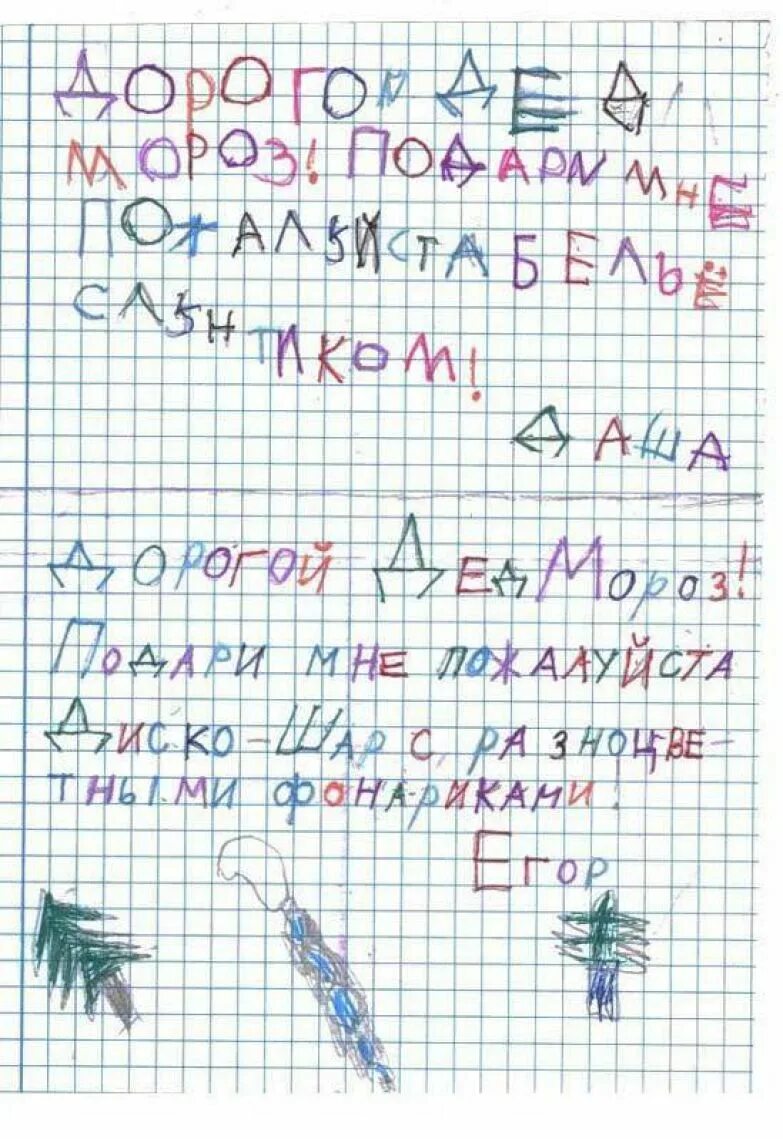 ДОРОГОЙ ДЕД
МОРОЗ! ПОДАРИ МНЕ
ПОЖАЛУЙСТА БЕЛЬЕ
СЛУНТИКОМ!
ДАША
ДОРОГОЙ ДЕД МОРОЗ!
ПОДАРИ МНЕ ПОЖАЛУЙСТА
ДИСКО-ШАР С РАЗНОЦВЕ-
ТНЫМИ ФОНАРИКАМИ.
ЕГОР